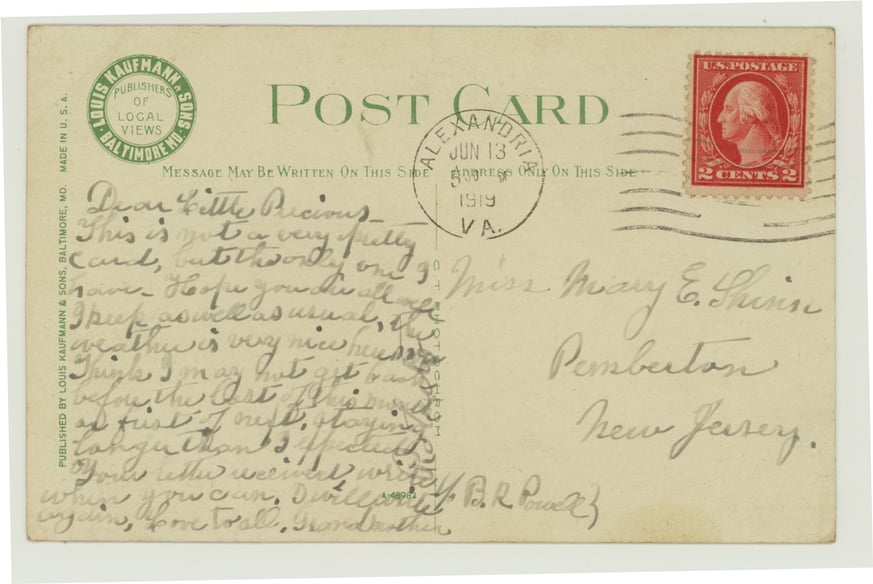 LOUIS KAUFMANN & SONS
BALTIMORE MD.
PUBLISHERS
OF
LOCAL
VIEWS
POST CARD
U.S. POSTAGE
2 CENTS 2
ALEXANDRIA
JUN 13
1919
VA.
MESSAGE MAY BE WRITTEN ON THIS SIDE
ADDRESS ONLY ON THIS SIDE
PUBLISHED BY LOUIS KAUFMANN & SONS, BALTIMORE, MD. MADE IN U. S. A.
Dear Little Precious
This is not a very pretty
card, but the only one I
have - Hope you are all well
I keep as well as usual, the
weather is very nice here now
Think I may not get back
before the last of this month
or first of next, staying
longer than I expected
Your letter received write
when you can, I will write
again, Love to all, Grandmother
A-48982
B. R. Powell
Miss Mary E. Shinn
Pemberton
New Jersey.